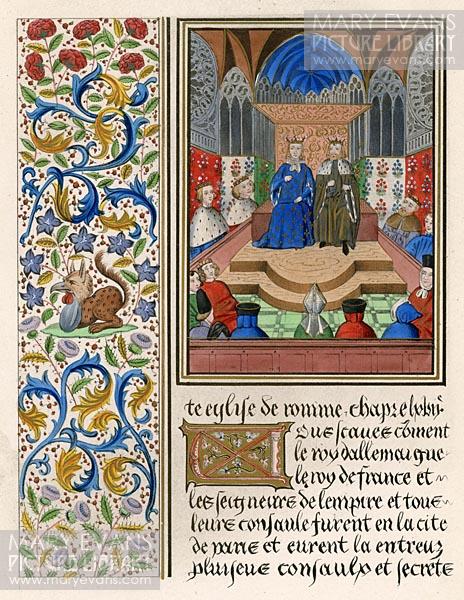 MARY EVANS
PICTURE LIBRARY
www.maryevans.com
te eglise de romme. chapr̄e
ous scaues cōment
le roy dallemaigne
le roy de france et
les seigneurs de lempire et tous
leurs consaulx furent en la cite
de paris et eurent la entreulx
pluiseurs consaulx et secrets
MARY EVANS
PICTURE LIBRARY
www.maryevans.com